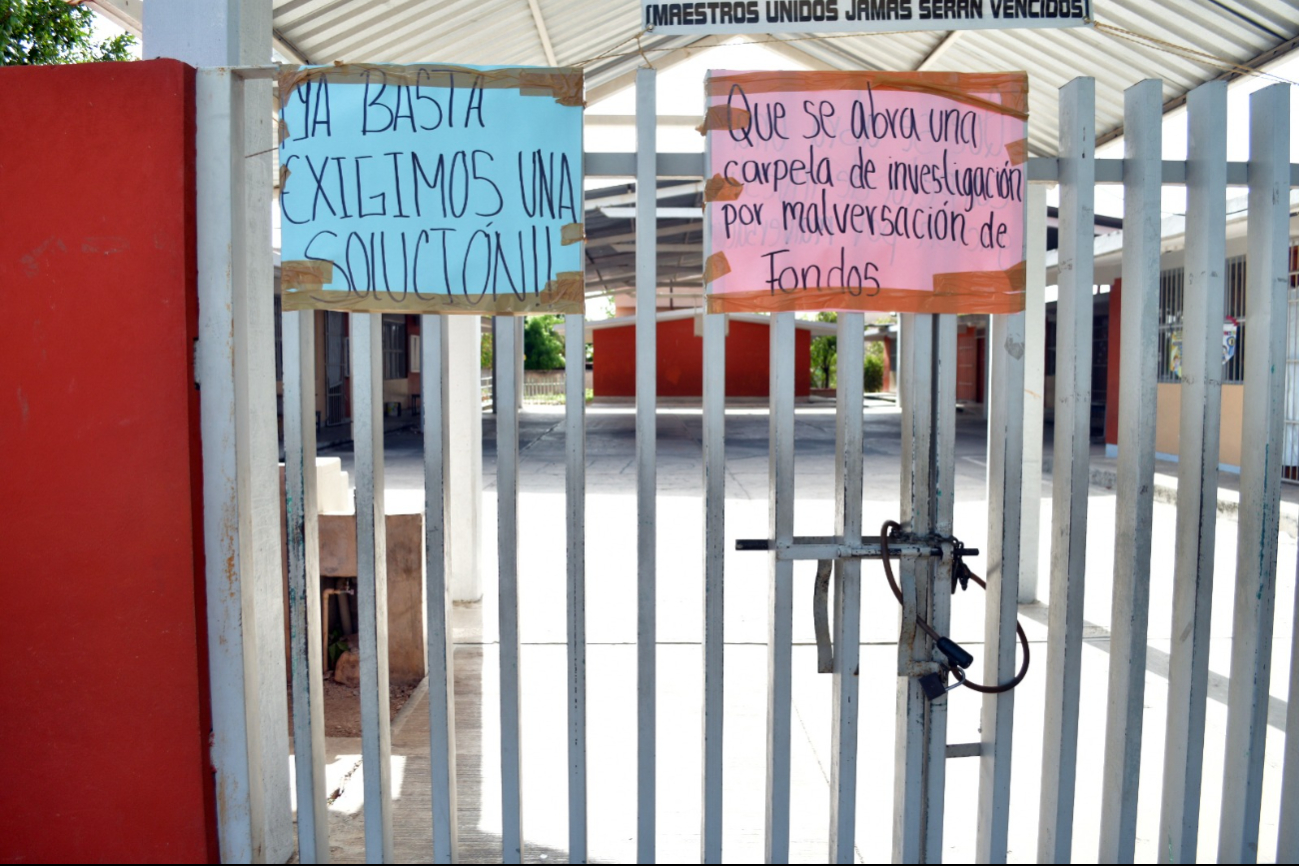 ¡MAESTROS UNIDOS JAMAS SERAN VENCIDOS!
¡YA BASTA
EXIGIMOS UNA
SOLUCIÓN!!
Que se abra una
carpeta de investigación
por malversación de
Fondos